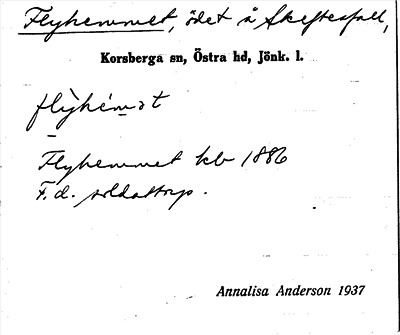 Flyhemmet, ödet å Skeftesfall,
Korsberga sn, Östra hd, Jönk. l.
flỳhém̱ət
Flyhemmet kb 1886
F.d. soldattorp.
Annalisa Anderson 1937